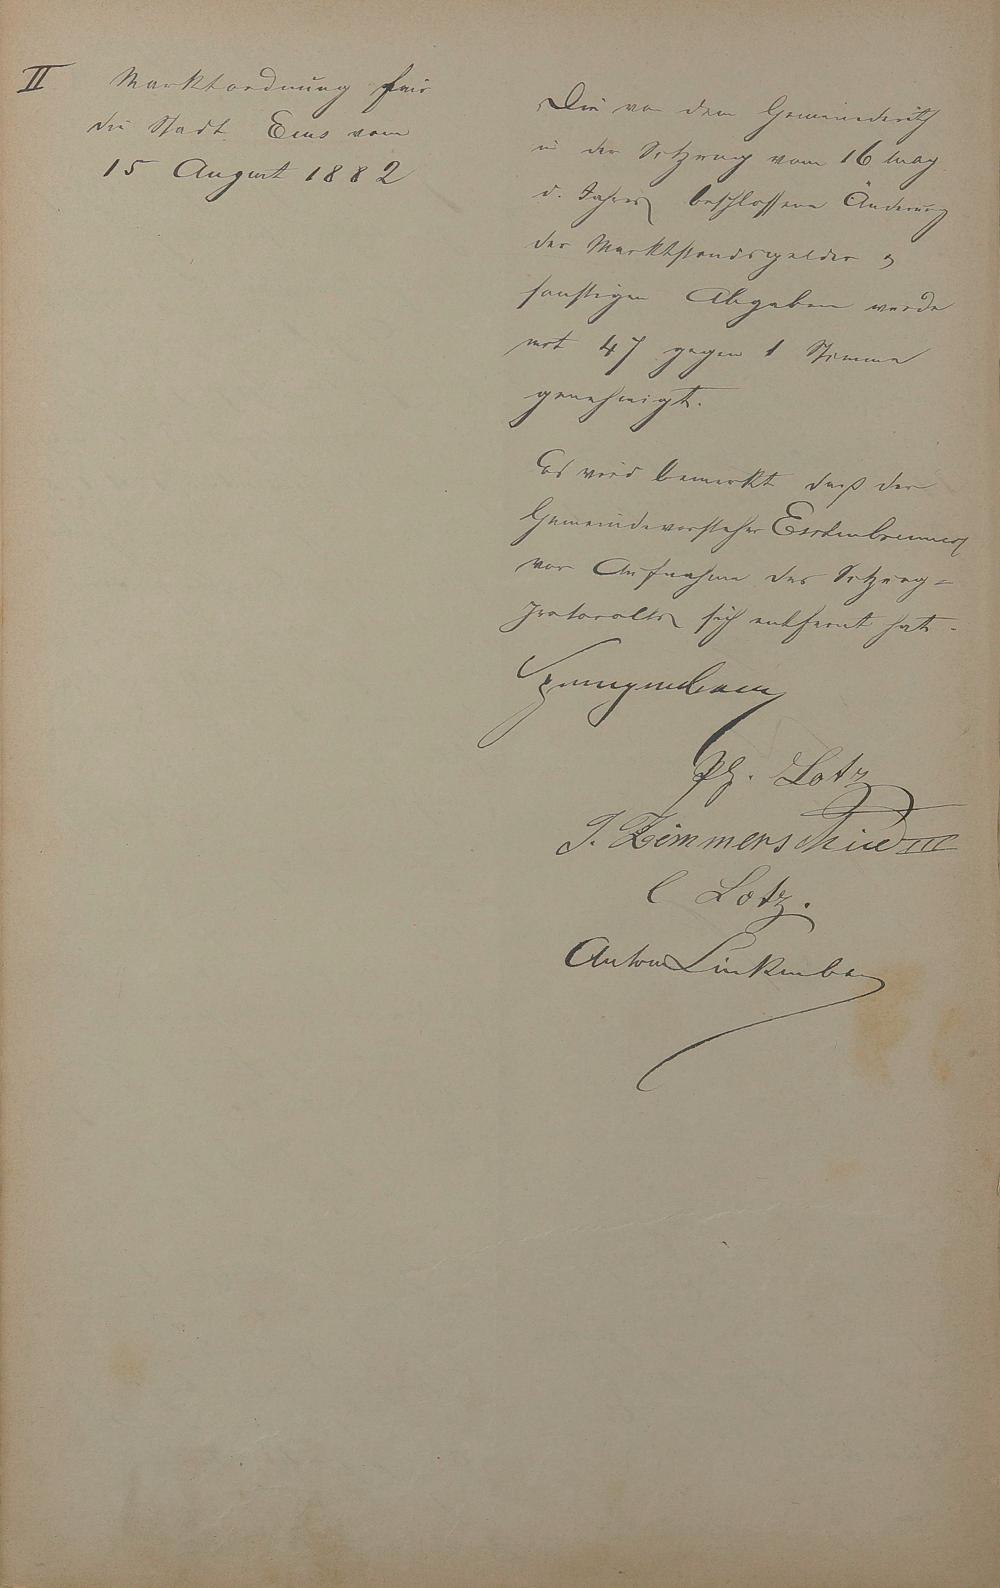 II Marktordnung für
die Stadt Ems vom
15 August 1882
Die von dem Gemeinderath
in der Sitzung vom 16 May
d. Jahres beschlossene Änderung
der Marktstandsgelder &
sonstigen Abgaben wurde
mit 47 gegen 1 Stimme
genehmigt.
Es wird bemerkt daß der
Gemeindevorsteher
vor Aufnahme des Sitzung=
Protocolls sich entfernt hat.
Ph. Lotz
J. Zimmerschied III
C Lotz.
Anton Linkenbach